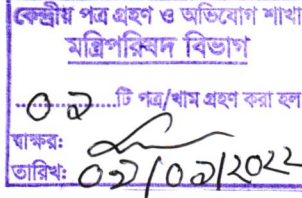 কেন্দ্রীয় পত্র গ্রহণ ও অভিযোগ শাখা
মন্ত্রিপরিষদ বিভাগ
০২ টি পত্র/খাম গ্রহণ করা হল
স্বাক্ষর:
তারিখ: ০২/০২/2022